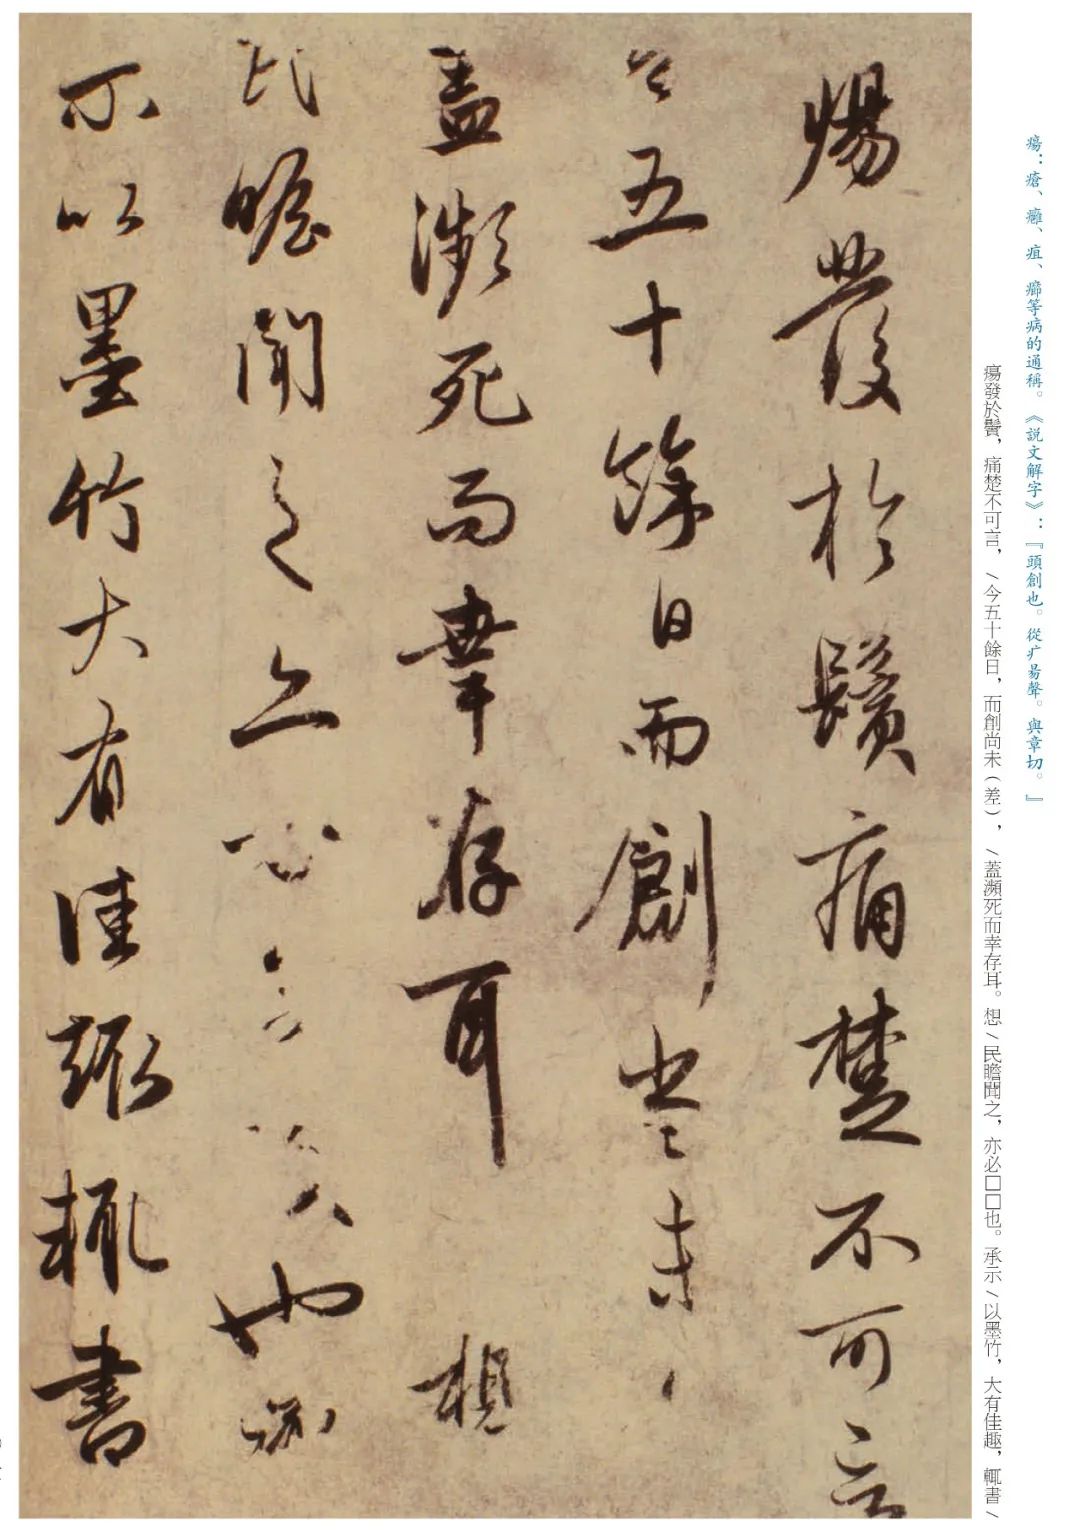 瘍：瘡、癰、疽、癤等病的通稱。《説文解字》：『頭創也。從疒昜聲。與章切。』
瘍發於鬢，痛楚不可言，/今五十餘日，而創尚未（差），/蓋瀕死而幸存耳。想/民瞻聞之，亦必□□也。承示/以墨竹，大有佳趣，輒書/
瘍發於鬢痛楚不可言
今五十餘日而創尚未
蓋瀕死而幸存耳 想
民瞻聞之亦必也承
示以墨竹大有佳趣輒書